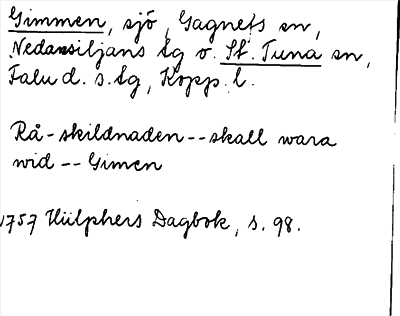 Gimmen, sjö, Gagnefs sn,
Nedansiljans tg o. St. Tuna sn,
Falu d. s. tg, Kopp. l.
Rå-skildnaden -- skall wara
wid -- Gimen
1757 Hülphers Dagbok, s. 98.